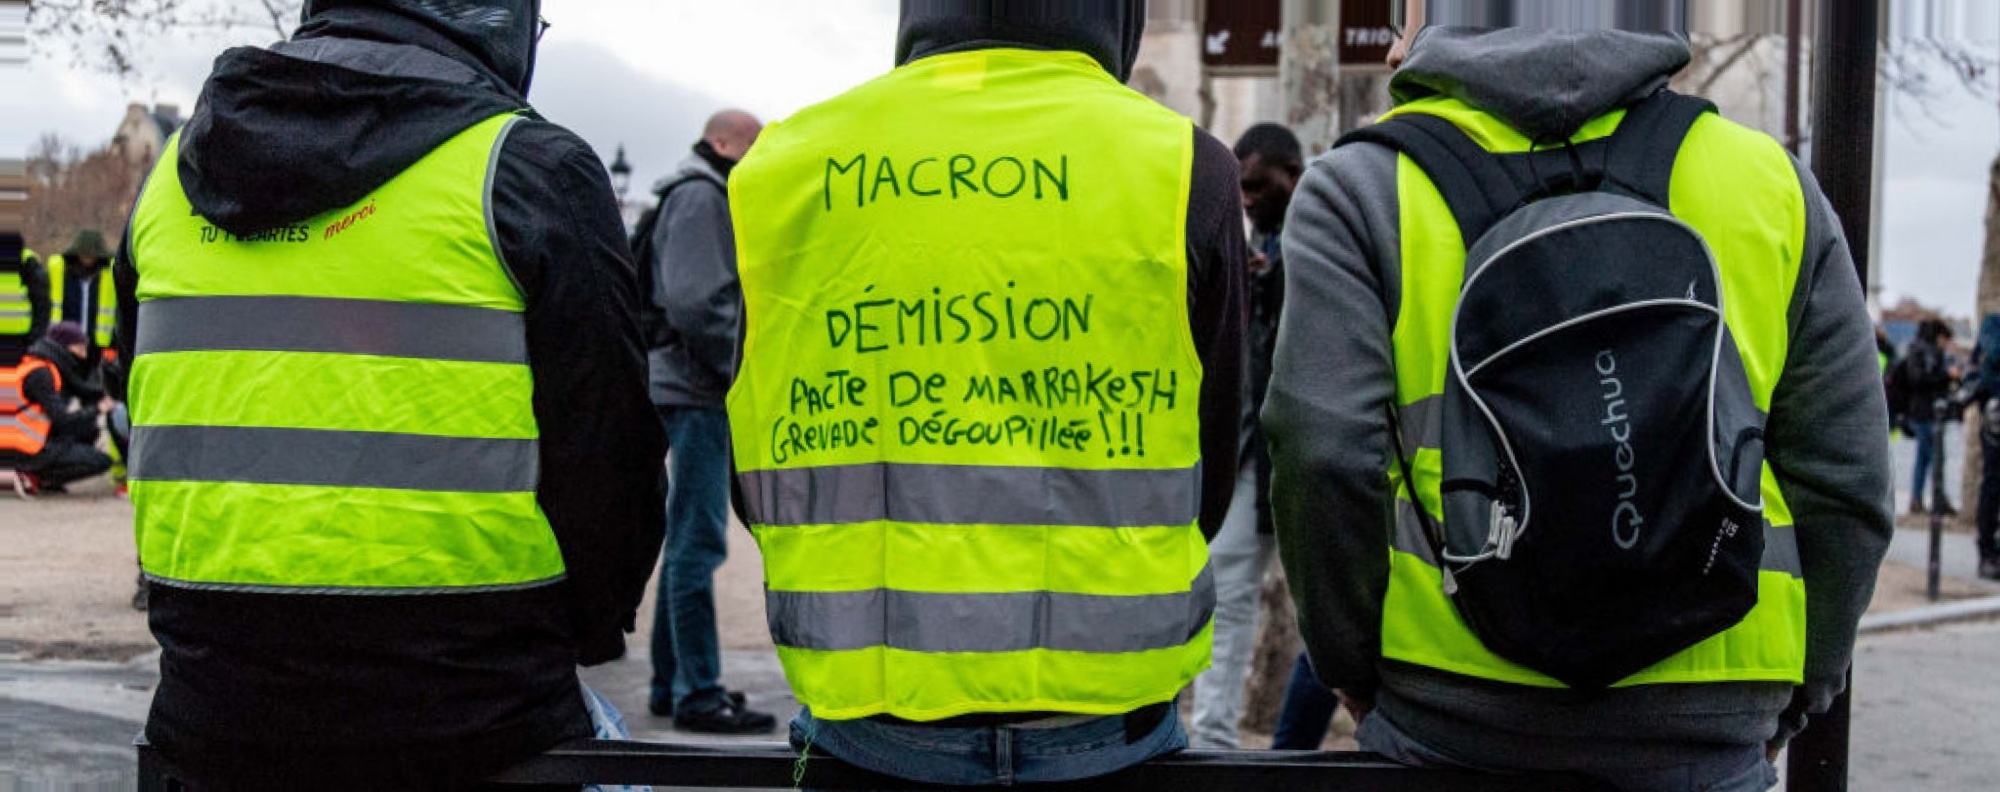 TU T'ÉCARTES merci
MACRON
DÉMISSION
PACTE DE MARRAKESH
GRENADE DÉGOUPILLÉE !!!
Quechua
TRIO